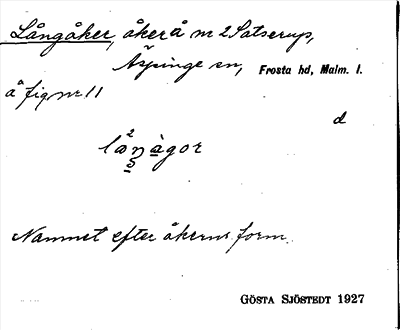 Långåker, åker å nr 2 Satserup,
Äspinge sn, Frosta hd, Malm. l.
å fig nr 11
d
Namnet efter åkerns form.
GÖSTA SJÖSTEDT 1927